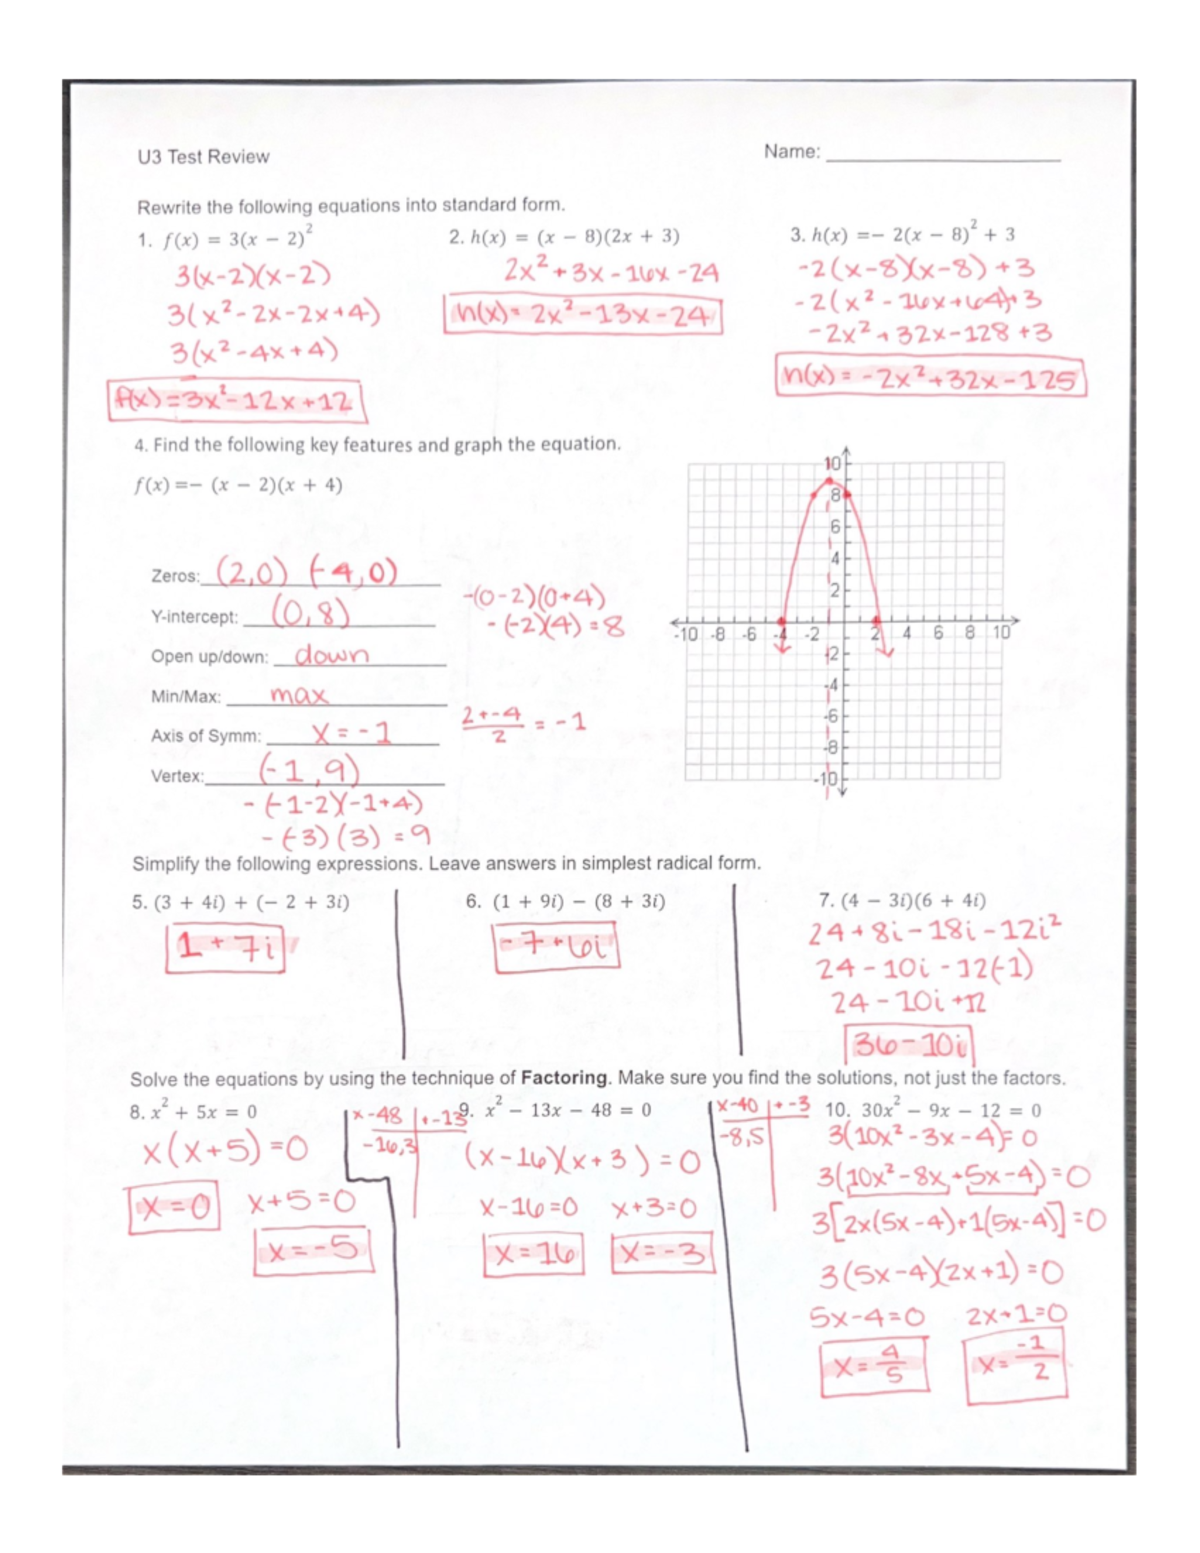 U3 Test Review Name:
Rewrite the following equations into standard form.
1. f(x) = 3(x − 2)² 2. h(x) = (x − 8)(2x + 3) 3. h(x) =− 2(x − 8)² + 3
3(x-2)(x-2) 2x²+3x-16x-24 -2(x-8)(x-8)+3
3(x²-2x-2x+4) h(x)= 2x²-13x-24 -2(x²-16x+64)+3
3(x²-4x+4) -2x²+32x-128+3
f(x)=3x²-12x+12 h(x)= -2x²+32x-125
4. Find the following key features and graph the equation.
f(x) =− (x − 2)(x + 4)
Zeros: (2,0) (-4,0)
-(0-2)(0+4)
Y-intercept: (0,8) -(-2)(4)=8
Open up/down: down
Min/Max: max
Axis of Symm: x=-1 2+-4/2 = -1
Vertex: (-1,9)
-(-1-2)(-1+4)
-(-3)(3)=9
10
8
6
4
2
-10 -8 -6 -4 -2 2 4 6 8 10
-2
-4
-6
-8
-10
Simplify the following expressions. Leave answers in simplest radical form.
5. (3 + 4i) + (− 2 + 3i) 6. (1 + 9i) − (8 + 3i) 7. (4 − 3i)(6 + 4i)
1+7i -7+6i 24+8i-18i-12i²
24-10i-12(-1)
24-10i+12
36-10i
Solve the equations by using the technique of Factoring. Make sure you find the solutions, not just the factors.
8. x² + 5x = 0 x -48 + -13 9. x² − 13x − 48 = 0 x-40 + -3 10. 30x² − 9x − 12 = 0
x(x+5)=0 -16,3 (x-16)(x+3)=0 -8,5 3(10x²-3x-4)=0
x=0 x+5=0 x-16=0 x+3=0 3(10x²-8x+5x-4)=0
x=-5 x=16 x=-3 3[2x(5x-4)+1(5x-4)]=0
3(5x-4)(2x+1)=0
5x-4=0 2x+1=0
x=4/5 x=-1/2